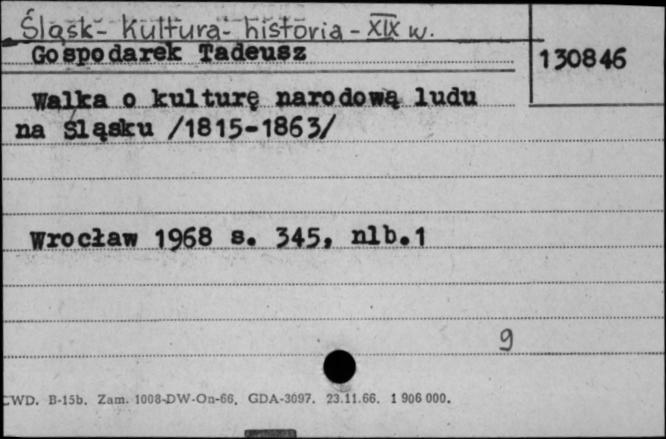 Śląsk- Kultura- historia - XIX w.
Gospodarek Tadeusz
130846
Walka o kulturę narodową ludu
na Śląsku /1815-1863/
Wrocław 1968 s. 345, nlb.1
9
CWD. B-15b. Zam. 1008-DW-On-66. GDA-3097. 23.11.66. 1 906 000.